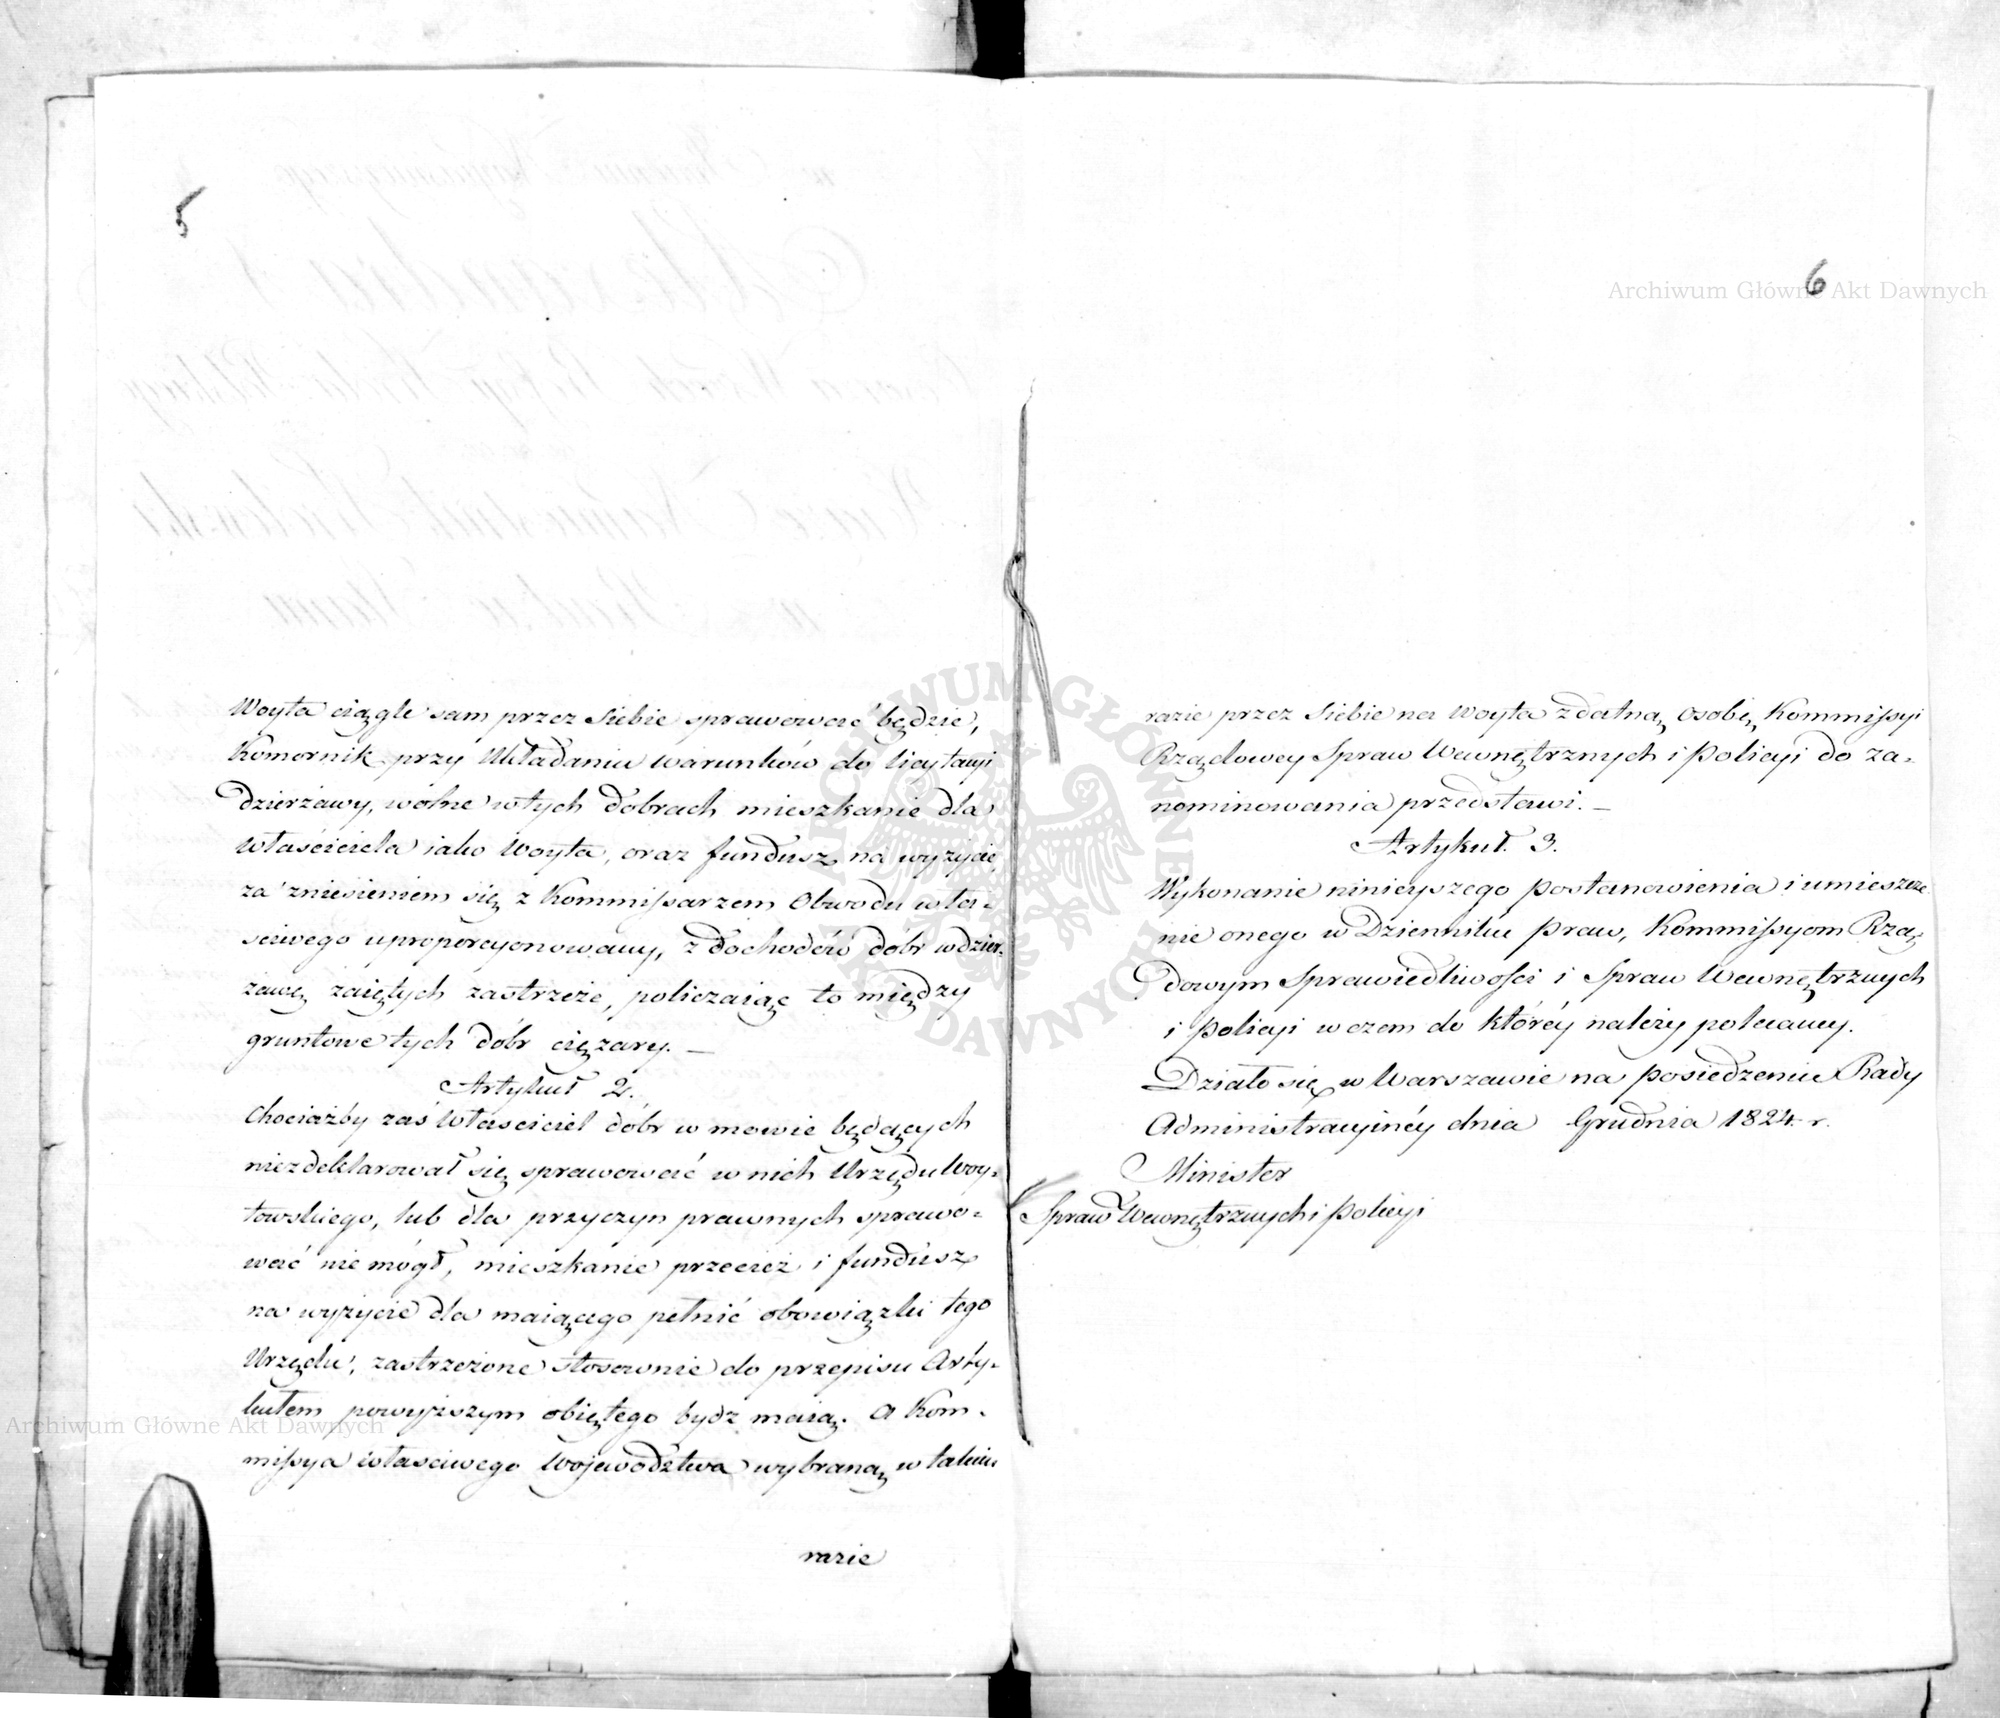 5
Woyta ciągle sam przez siebie sprawować będzie,
Komornik przy Układaniu warunków do licytacyi
dzierżawy, wolne w tych dobrach mieszkanie dla
właściciela iako Woyta, oraz fundusz na wyżycie,
za zniesieniem się z Kommissarzem Obwodu wła-
sciwego uproporcyonowany, z dochodów dóbr w dzier-
żawę zaiętych zastrzeże, policzaiąc to między
gruntowe tych dóbr ciężary. —
Artykuł 2.
Chociażby zaś właściciel dóbr w mowie będących
niezdeklarował się sprawować w nich Urzędu Woy-
towskiego, lub dla przyczyn prawnych sprawo-
wać nie mógł, mieszkanie przecież i fundusz
na wyżycie dla maiącego pełnić obowiązki tego
Urzędu, zastrzeżone stosownie do przepisu Arty-
kułem powyższym obiętego bydz maią. A Kom-
missya właściwego Województwa wybraną w takim
razie
6
razie przez siebie na Woyta zdatną osobę, Kommissyi
Rządowey Spraw Wewnętrznych i Policyi do za-
nominowania przedstawi. —
Artykuł 3.
Wykonanie ninieyszego postanowienia i umieszcze-
nie onego w Dzienniku praw, Kommissyom Rzą-
dowym Sprawiedliwości i Spraw Wewnętrznych
i Policyi w czem do któréy należy polecamy.
Działo się w Warszawie na posiedzeniu Rady
Administracyinéy dnia Grudnia 1824 r.
Minister
Spraw Wewnętrznych i Policyi
Archiwum Główne Akt Dawnych
Archiwum Główne Akt Dawnych
ARCHIWUM GŁÓWNE AKT DAWNYCH